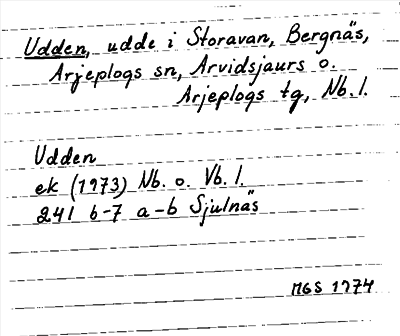 Udden, udde i Storavan, Bergnäs,
Arjeplogs sn, Arvidsjaurs o.
Arjeplogs tg, Nb. l.
Udden
ek (1973) Nb. o. Vb. l.
241 6-7 a-b Sjulnäs
MGS 1974